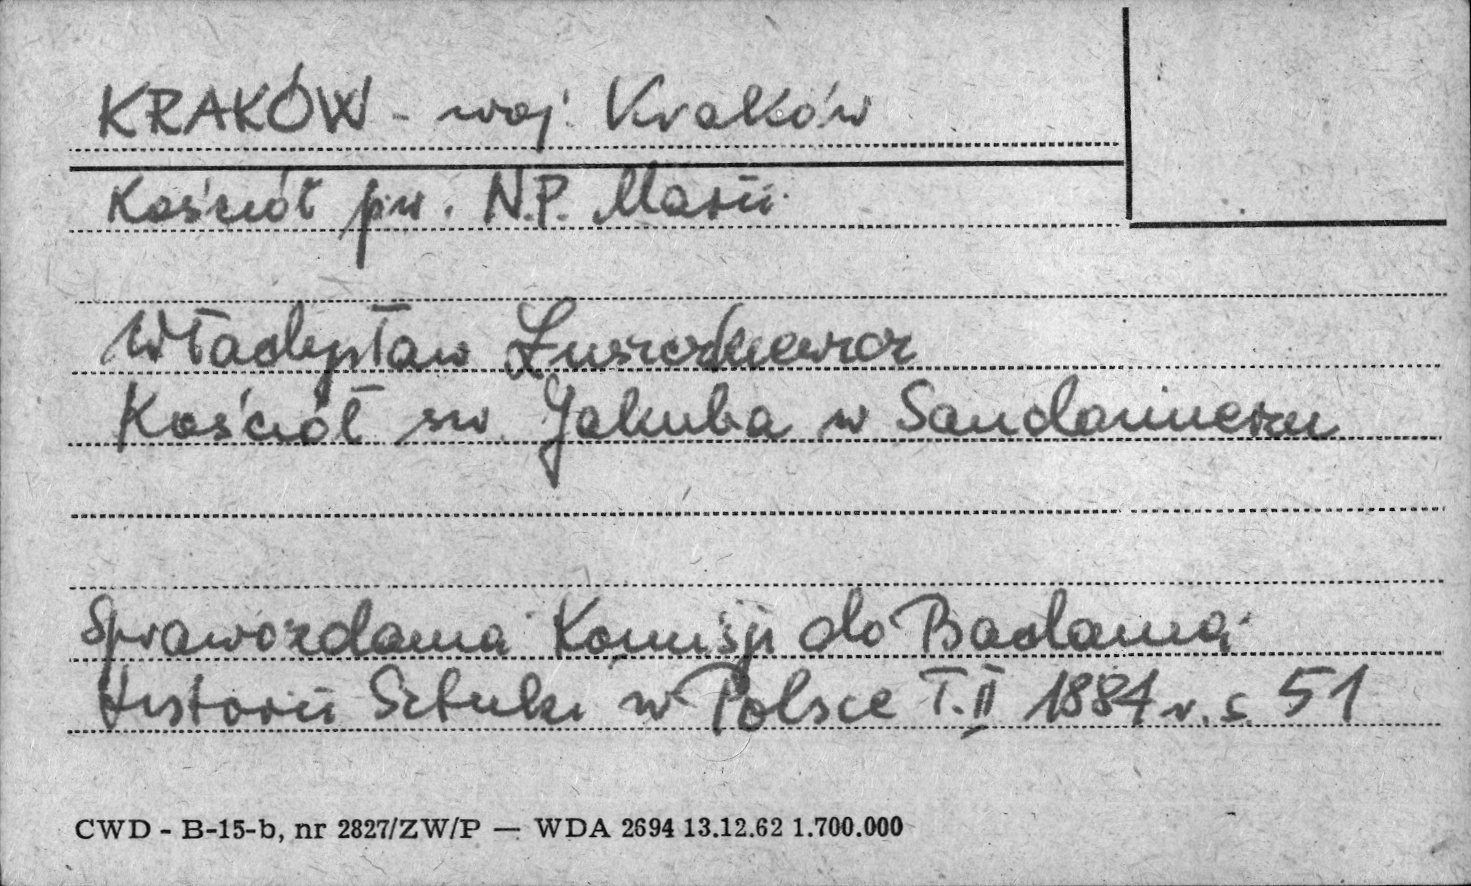 KRAKÓW - woj. Kraków
Kościół pw. N.P. Marii
Władysław Łuszczkiewicz
Kościół św. Jakuba w Sandomierzu
Sprawozdania Komisji do Badania
Historii Sztuki w Polsce T.II 1884 r. s. 51
CWD - B-15-b, nr 2827/ZW/P — WDA 2694 13.12.62 1.700.000